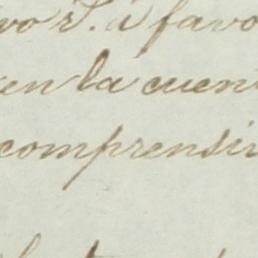 vor S. á favo
en la cuen
comprensi